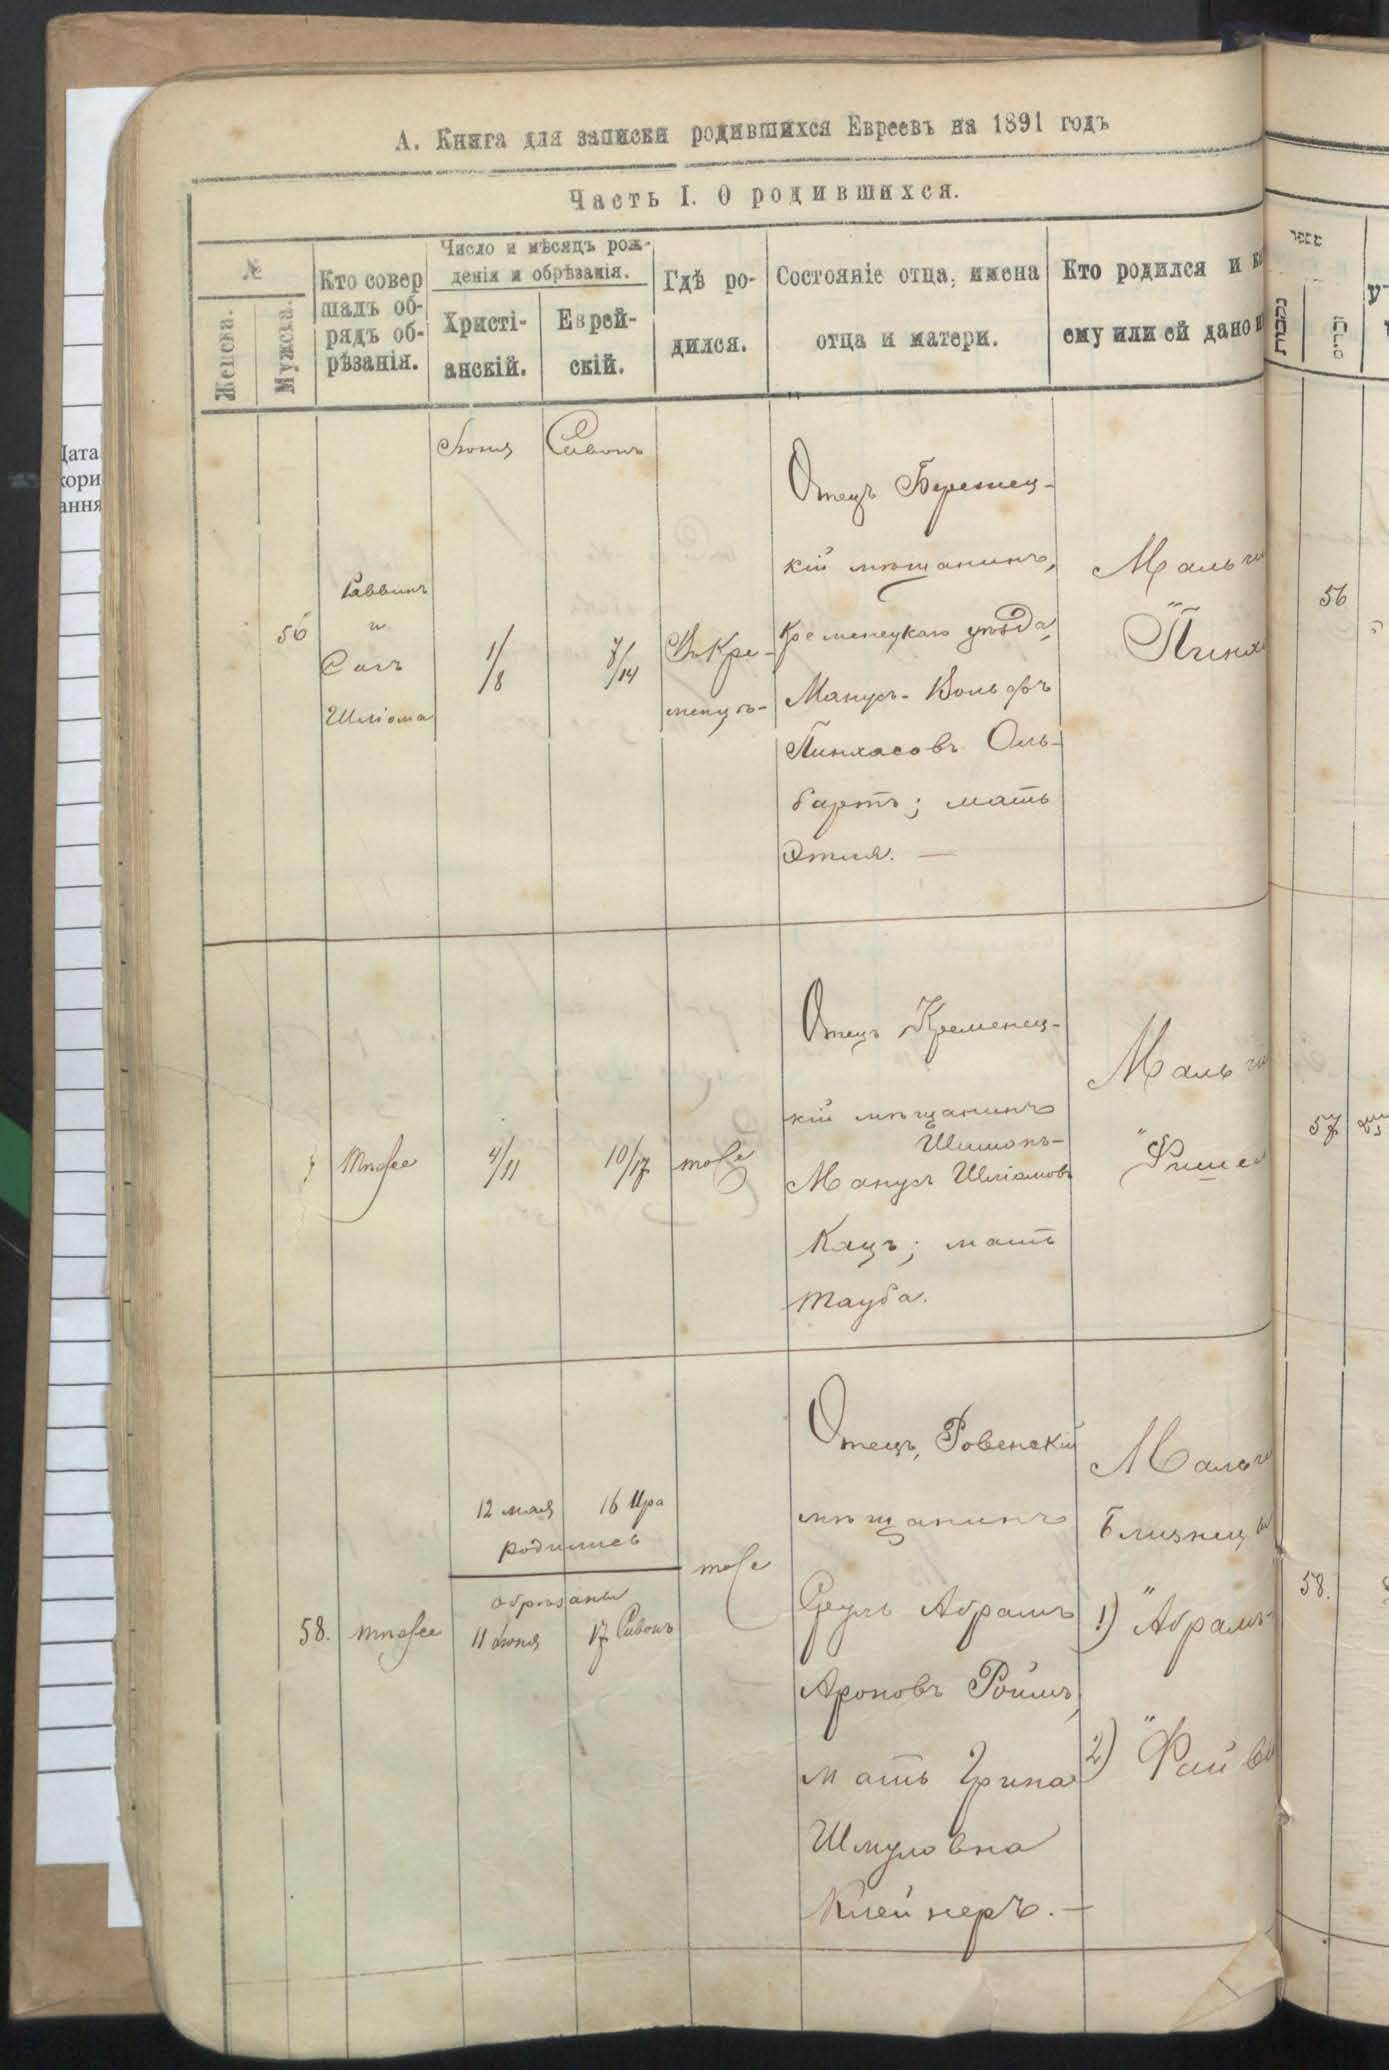 А. Книга для записи родившихся Евреевъ на 1891 годъ
Часть I. О родившихся.
№
Женска.
Мужска.
Кто совер
шалъ об-
рядъ об-
рѣзанія.
Число и мѣсяцъ рож-
денія и обрѣзанія.
Христі-
анскій.
Еврей-
скій.
Гдѣ ро-
дился.
Состояніе отца, имена
отца и матери.
Кто родился и
ему или ей дано
Іюня
Сивонъ
56
Раввинъ
и
Сагъ
Шліома
1/8
7/14
Въ Кре-
менцѣ-
Отецъ Бережец-
кій мѣщанинъ,
Кременецкаго уѣзда,
Манусъ-Вольфъ
Пинхасовъ Оль-
бартъ; мать
Этля. —
Мальчи
"Пинх
56
тѣ же
4/11
10/17
тоже
Отецъ Кременец-
кій мѣщанинъ
Шимонъ-
Манусъ Шліомовъ
Кацъ; мать
Тауба.
Мальчи
"Фише
57
58.
тѣ же
12 мая
16 Ира
родились
обрѣзаны
11 Іюня
17 Сивонъ
тоже
Отецъ, Ровенскій
мѣщанинъ
Сруль Абрамъ
Ароновъ Ройзъ,
мать
Шмуловна
Клейнеръ. —
Мальч
Близнецы
1) "Абрамъ-
2) "Файв
58.
Дата
кори
ання